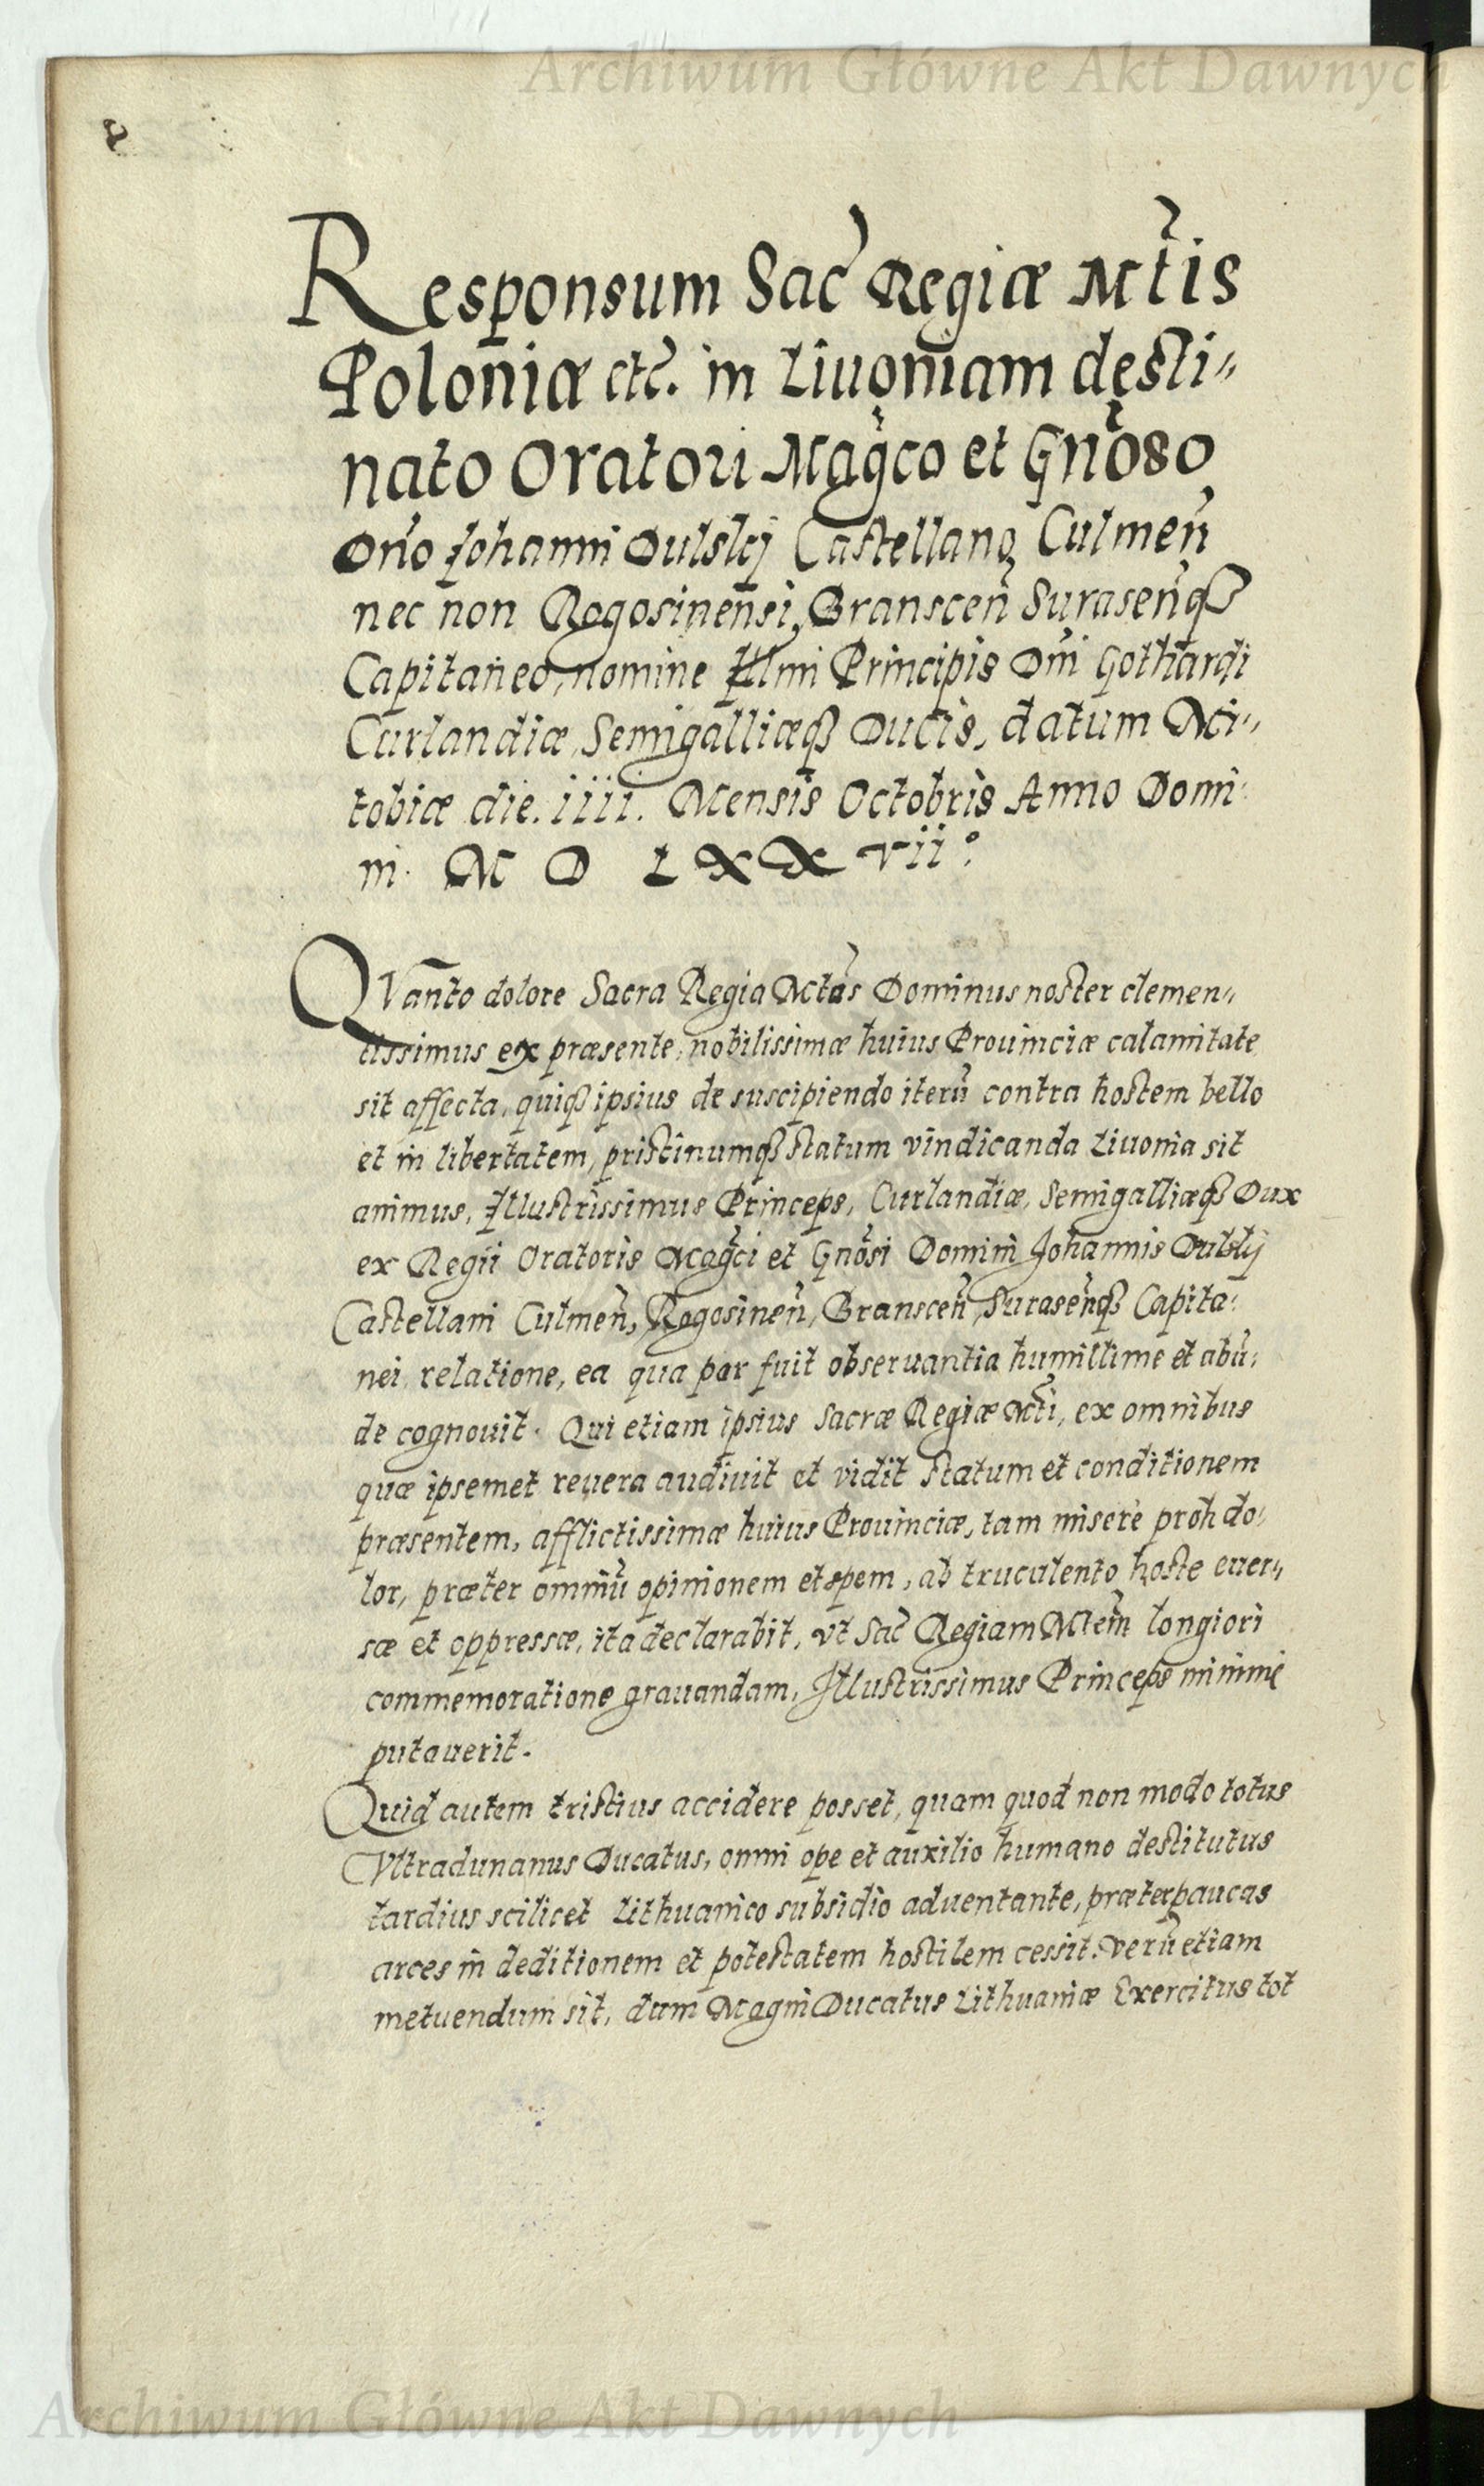 Archiwum Główne Akt Dawnych
Responsum Sac Regiæ Mtis
Poloniæ etc. in Liuoniam desti„
nato Oratori Magco et Gnoso
Dno Johanni Dulskj Castellano Culmen
nec non Rogosinensi, Branscen Surasenq
Capitaneo, nomine Illmi Principis Dni Gothardi
Curlandiæ, Semigalliæq Ducis, datum Mi„
tobiæ die. iiii. Mensis Octobris Anno Domi:
ni. M D L X X vii°.
QVanto dolore Sacra Regia Mtas Dominus noster clemen„
tissimus ex præsente, nobilissimæ huius Prouinciæ calamitate
sit affecta, quiq ipsius de suscipiendo iterū contra hostem bello
et in libertatem, pristinumq statum vindicanda Liuonia sit
animus, Illustrissimus Princeps, Curlandiæ, Semigalliæq Dux
ex Regii Oratoris Magci et Gnosi Domini Johannis Dulskj
Castellani Culmen, Rogosinen, Branscen, Surasenq Capita:
nei relatione, ea qua par fuit obseruantia humillime et abū:
de cognouit. Qui etiam ipsius Sacræ Regiæ Mti, ex omnibus
quæ ipsemet reuera audiuit et vidit statum et conditionem
præsentem, afflictissimæ huius Prouinciæ, tam miserè proh do:
lor, præter omniū opinionem et spem, ab truculento hoste euer„
sæ et oppressæ, ita declarabit, vt Sac Regiam Mtem longiori
commemoratione grauandam, Illustrissimus Princeps minime
putauerit.
Quid autem tristius accidere posset, quam quod non modo totus
Vltradunanus Ducatus, omni ope et auxilio humano destitutus
tardius scilicet Lithuanico subsidio aduentante, præter paucas
arces in deditionem et potestatem hostilem cessit. verū etiam
metuendum sit, dum Magni Ducatus Lithuaniæ Exercitus tot
Archiwum Główne Akt Dawnych